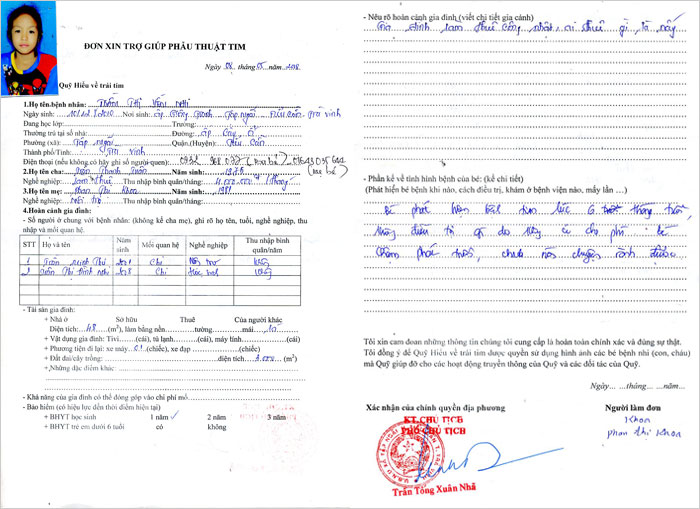 ĐƠN XIN TRỢ GIÚP PHẪU THUẬT TIM
Ngày 08 tháng 05 năm 2018
Quỹ Hiểu về trái tim
1.Họ tên.bệnh nhân: Trần Thị Yến Nhi
Ngày sinh: 10/12/2010 Nơi sinh: ấp Tập Ngãi Tiểu Cần, Trà Vinh
Đang học lớp: Trường:
Thường trú tại số nhà: Đường: ấp
Phường (xã): Tập Ngãi Quận.(Huyện): Tiểu Cần
Thành phố/Tỉnh: Trà Vinh
Điện thoại (nếu không có hãy ghi số người quen):
2.Họ tên cha: Trần Thanh Năm sinh: 1975
Nghề nghiệp: Làm thuê Thu nhập bình quân/tháng: 4.000.000đ/tháng
3.Họ tên mẹ: Phan Thị Khoa Năm sinh: 1981
Nghề nghiệp: Nội trợ
4.Hoàn cảnh gia đình:
- Số người ở chung với bệnh nhân: (không kể cha mẹ), ghi rõ họ tên, tuổi, nghề nghiệp, thu
nhập và mối quan hệ.
STT Họ và tên Năm sinh Mối quan hệ Nghề nghiệp Thu nhập bình quân/năm
1 Trần Thị Chị Nội trợ không
2 Trần Thị Nhi Chị Học sinh không
- Tài sản gia đình:
+ Nhà ở Sở hữu Thuê Của người khác
Diện tích: 48 (m²), làm bằng nền tường mái
+ Vật dụng gia đình: Tivi (cái), tủ lạnh (cái), máy tính (cái)
+ Phương tiện đi lại: xe máy 01 (chiếc), xe đạp (chiếc)
+ Đất đai/cây trồng: diện tích (m²)
+ Những đặc điểm khác:
- Khả năng của gia đình có thể đóng góp vào chi phí mổ
- Bảo hiểm (có hiệu lực đến thời điểm hiện tại)
+ BHYT học sinh 1 năm ✓ 2 năm 3 năm
+ BHYT trẻ em dưới 6 tuổi có không
- Nêu rõ hoàn cảnh gia đình (viết chi tiết gia cảnh)
Gia đình làm thuê công nhật, ai thuê gì là nấy
- Phần kể về tình hình bệnh của bé: (kể chi tiết)
(Phát hiện bé bệnh khi nào, cách điều trị, khám ở bệnh viện nào, mấy lần …)
Bé phát hiện bệnh tim lúc 6 tháng tuổi,
không điều trị gì do không có chi phí. bé
chậm phát triển, chưa nói chuyện rành được
Tôi xin cam đoan những thông tin chúng tôi cung cấp là hoàn toàn chính xác và đúng sự thật.
Tôi đồng ý để Quỹ Hiểu về trái tim được quyền sử dụng hình ảnh các bé bệnh nhi (con, cháu)
mà Quỹ giúp đỡ cho các hoạt động truyền thông của Quỹ và các đối tác của Quỹ.
Ngày… …tháng… …năm…
Xác nhận của chính quyền địa phương Người làm đơn
KT.CHỦ TỊCH
PHÓ CHỦ TỊCH
Khoa
Phan Thị Khoa
Trần Tống Xuân Nhã